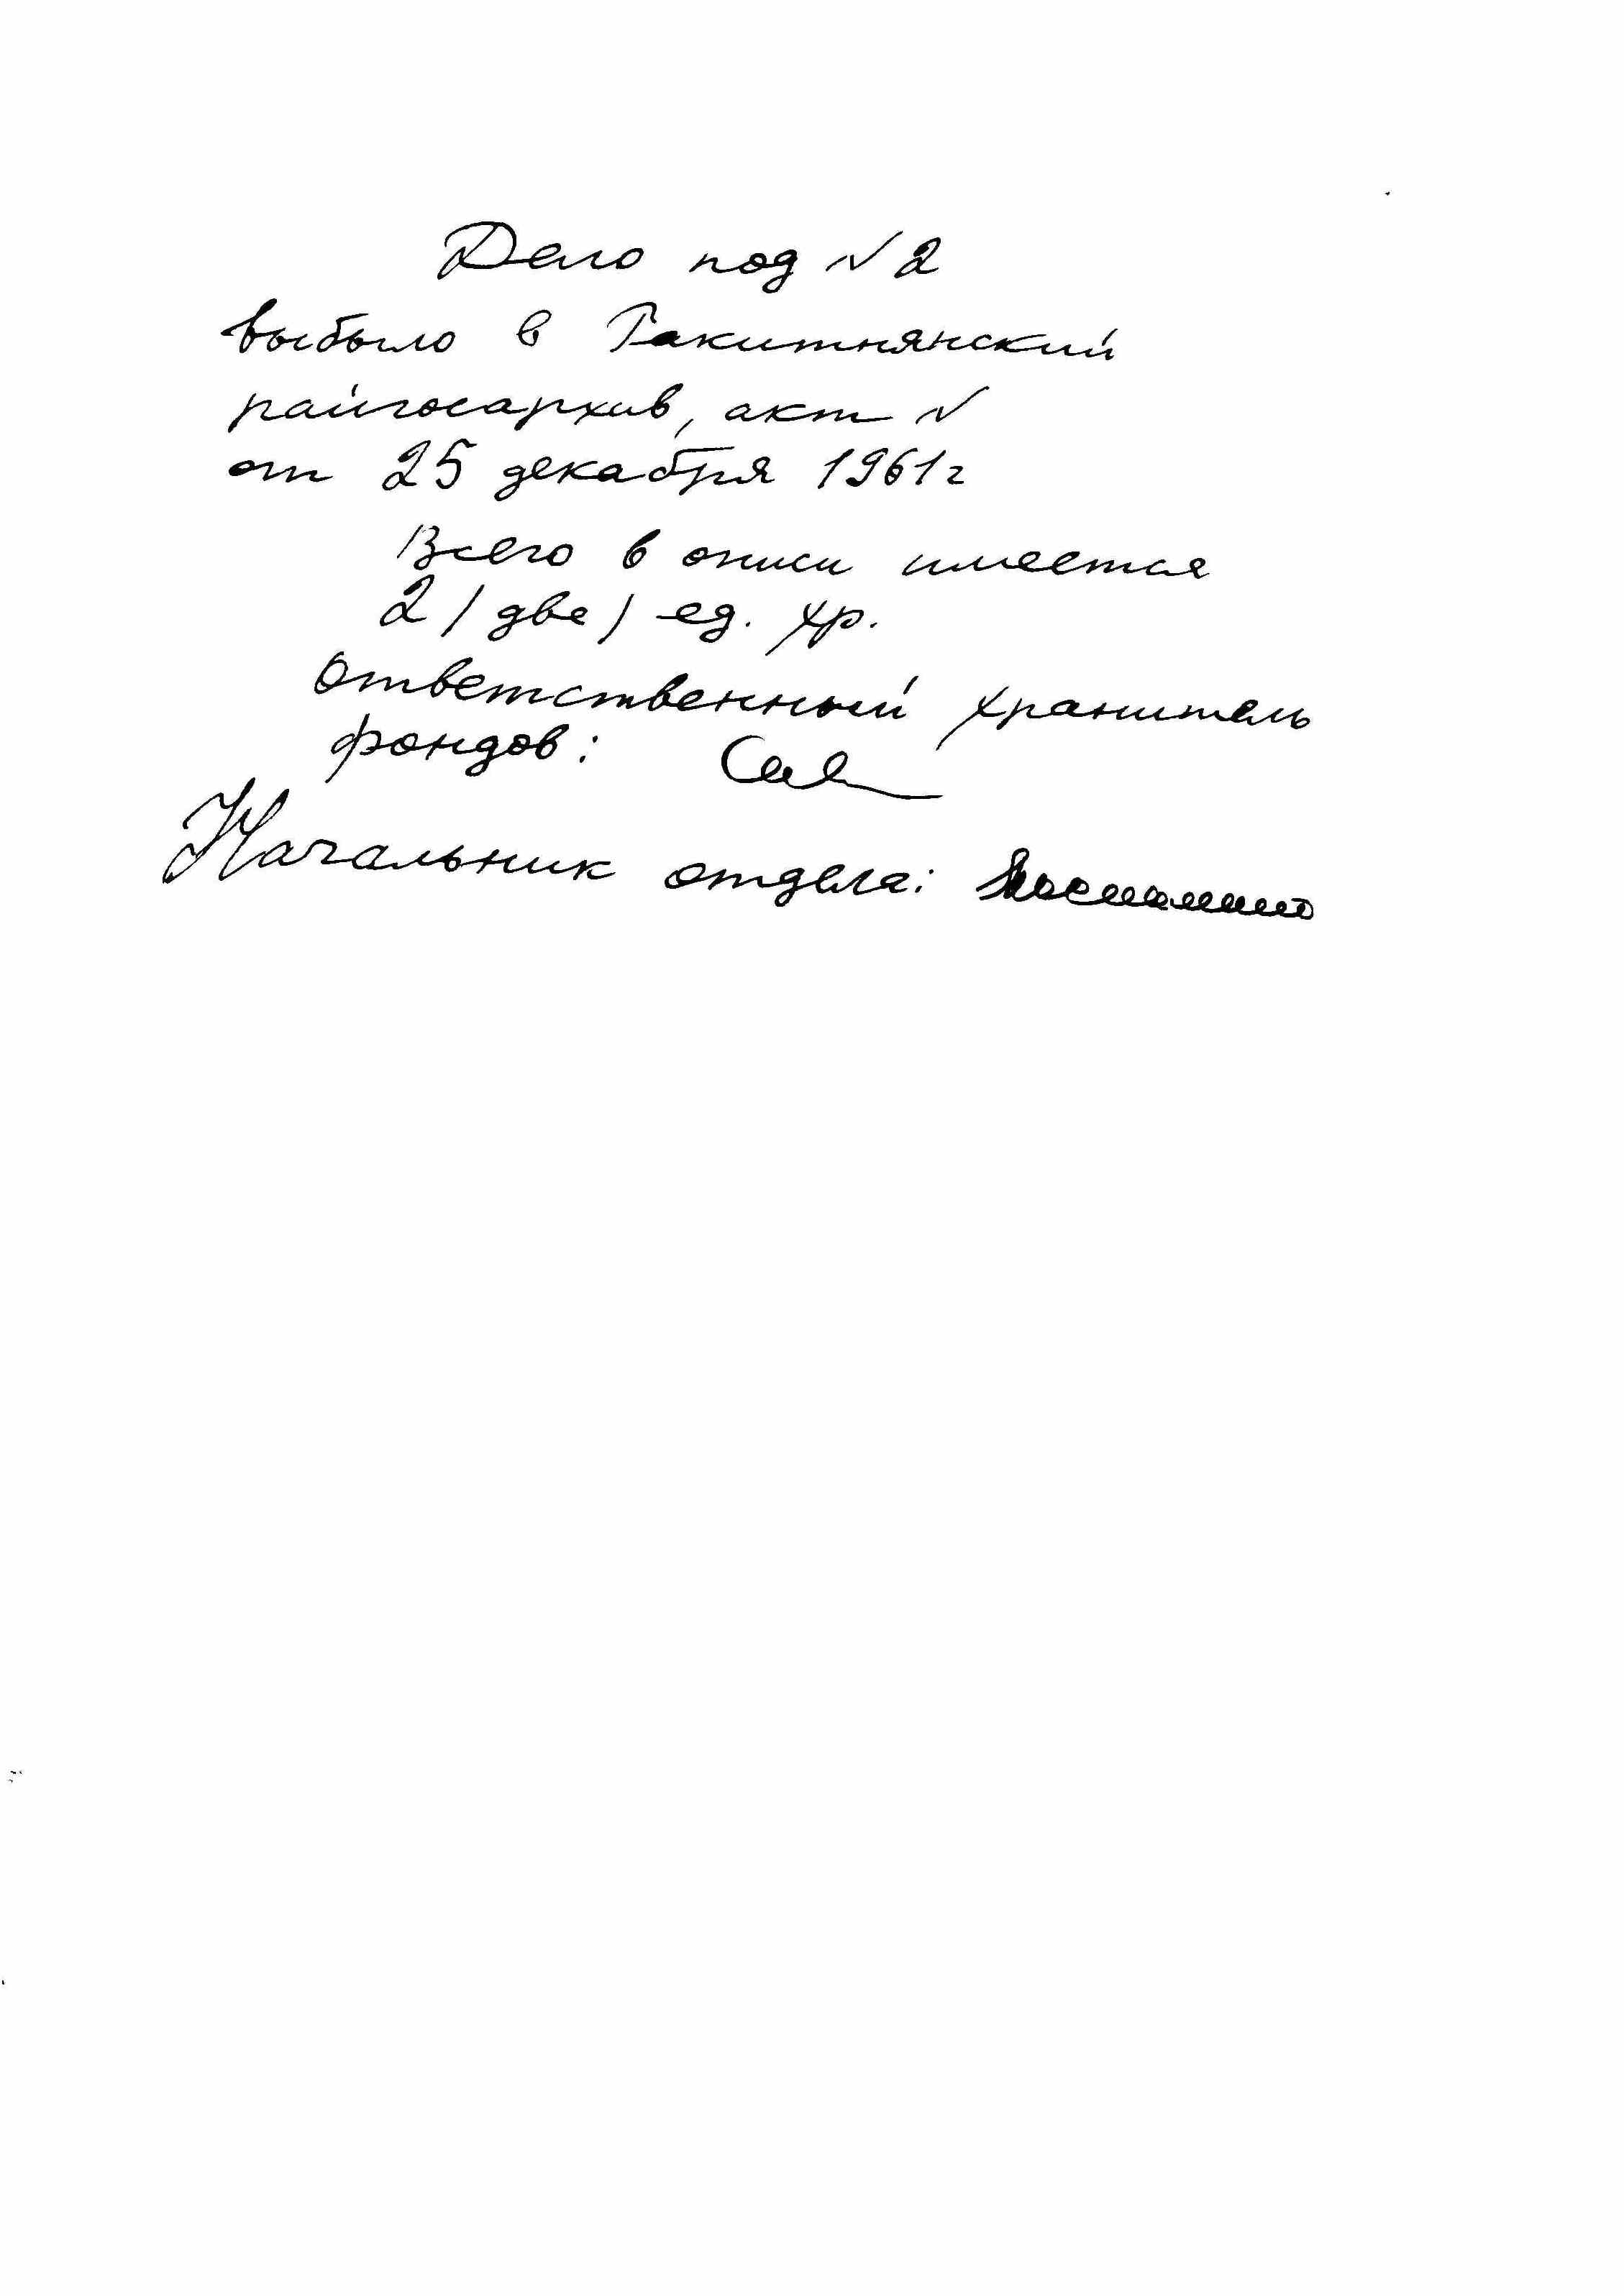 Дело под N 2
выбыло в Ракитнянский
райгосархив, акт N
от 25 декабря 1961г
Всего в описи имеется
2 /две/ ед. хр.
Ответственный хранитель
фондов:
Начальник отдела: